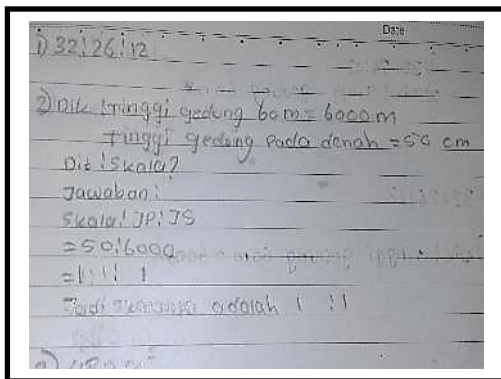 Date
1) 32:26:12
2) Dik : tinggi gedung 60 m = 6000 m
tinggi gedung pada denah = 50 cm
Dit : Skala?
Jawaban :
Skala : JP : JS
= 50:6000
= 1:1: 1
Jadi adalah 1 : 1